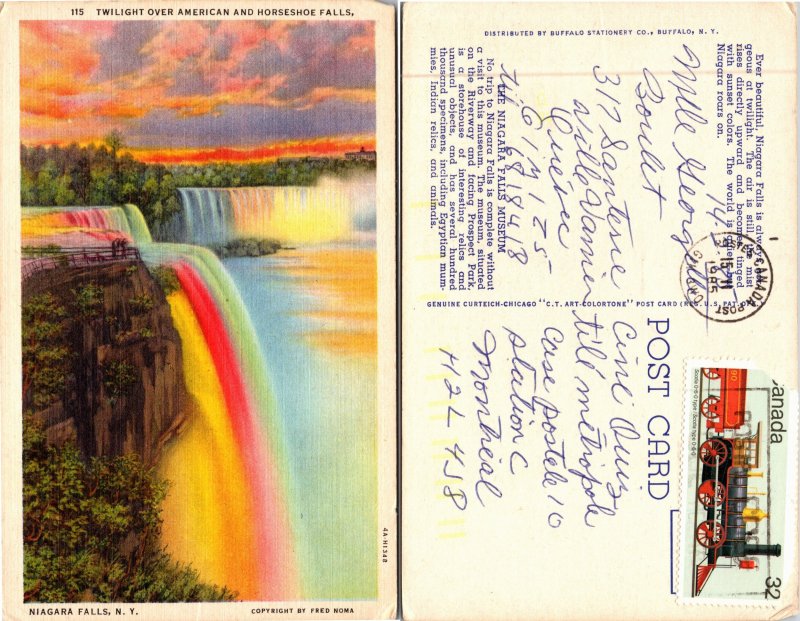 115 TWILIGHT OVER AMERICAN AND HORSESHOE FALLS,
NIAGARA FALLS, N. Y.
COPYRIGHT BY FRED NOMA
4A-H1348
DISTRIBUTED BY BUFFALO STATIONERY CO., BUFFALO, N. Y.
Ever beautiful, Niagara Falls is always
geous at twilight. The air is still, the mist
rises directly upward and becomes tinged
with sunset colors. The world is
Niagara roars on.
THE NIAGARA FALLS MUSEUM
No trip to Niagara Falls is complete without
a visit to this museum. The museum, situated
on the Riverway and facing Prospect Park,
is a storehouse of interesting relics and
unusual objects, and has several hundred
thousand specimens, including Egyptian mum-
mies, Indian relics, and animals.
GENUINE CURTEICH-CHICAGO "C.T. ART-COLORTONE" POST CARD (REG. U.S. PAT. OFF.)
POST CARD
Mlle
Boulet
317 Santerre
Ville Vanier
Québec
G1M
Ciné Quiz
Télé métropole
Case postale 10
Station C
Montreal
H2L 4S8
CANADA
POST
1985
Canada
32
Scotia 0-6-0 type